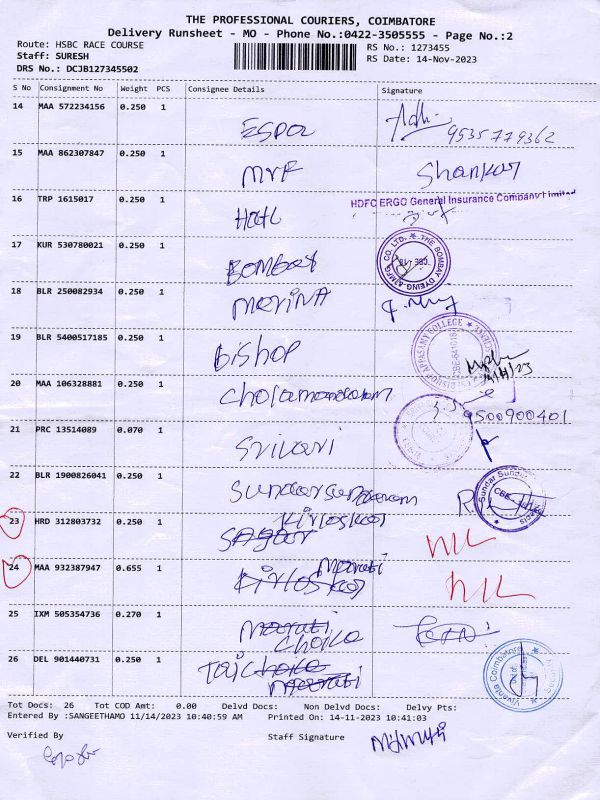 THE PROFESSIONAL COURIERS, COIMBATORE
Delivery Runsheet - MO - Phone No.:0422-3505555 - Page No.:2
Route: HSBC RACE COURSE
RS No.: 1273455
Staff: SURESH
RS Date: 14-Nov-2023
DRS No.: DCJB127345502
S No Consignment No Weight PCS Consignee Details Signature
14 MAA 572234156 0.250 1
9535779362
15 MAA 862307847 0.250 1 MRF Shankar
HDFC ERGO General Insurance Company Limited
16 TRP 1615017 0.250 1
17 KUR 530780021 0.250 1 BOMBAY
THE BOMBAY DYEING & MFG. CO. LTD.
18 BLR 250082934 0.250 1 MARINA
19 BLR 5400517185 0.250 1 Bishop
BISHOP APPASAMY COLLEGE
20 MAA 106328881 0.250 1 Cholamandalam
9500900401
21 PRC 13514089 0.070 1 Srivari
22 BLR 1900826041 0.250 1 Sundarsundaram
Sundar Sundar
23 HRD 312803732 0.250 1 Sagar Kirloskar NIL
24 MAA 932387947 0.655 1 Kirloskar Maruti NIL
25 IXM 505354736 0.270 1 Maruti Choice
26 DEL 901440731 0.250 1 Taj Choice Maruti
Vivanta Coimbatore
Tot Docs: 26 Tot COD Amt: 0.00 Delvd Docs: Non Delvd Docs: Delvy Pts:
Entered By :SANGEETHAMO 11/14/2023 10:40:59 AM Printed On: 14-11-2023 10:41:03
Verified By Staff Signature